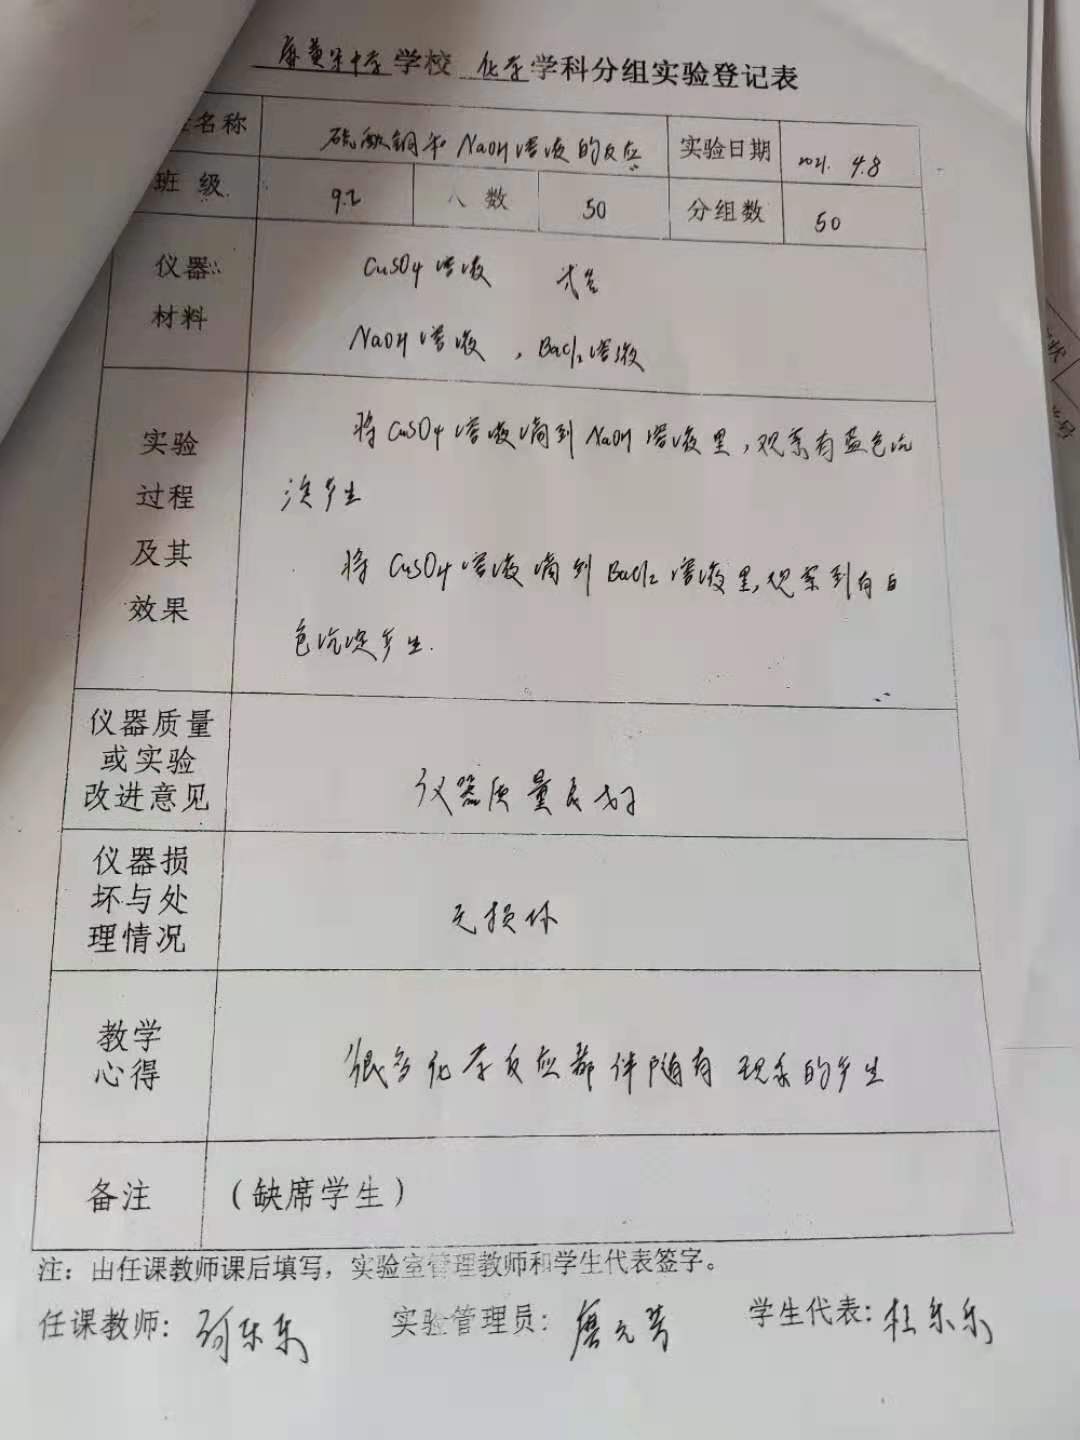 中学学校 化学学科分组实验登记表
名称 硫酸铜和NaOH溶液的反应 实验日期 2021. 4.8
班级 9.2 人数 50 分组数 50
仪器 材料
CuSO4溶液 试管
NaOH溶液,BaCl2溶液
实验过程及其效果
将CuSO4溶液滴到NaOH溶液里,观察有蓝色沉
淀产生
将CuSO4溶液滴到BaCl2溶液里,观察到有白
色沉淀产生.
仪器质量或实验改进意见 仪器质量良好
仪器损坏与处理情况 无损坏
教学心得 很多化学反应都伴随有现象的产生
备注 (缺席学生)
注:由任课教师课后填写,实验室管理教师和学生代表签字。
任课教师: 实验管理员: 学生代表:杜乐乐